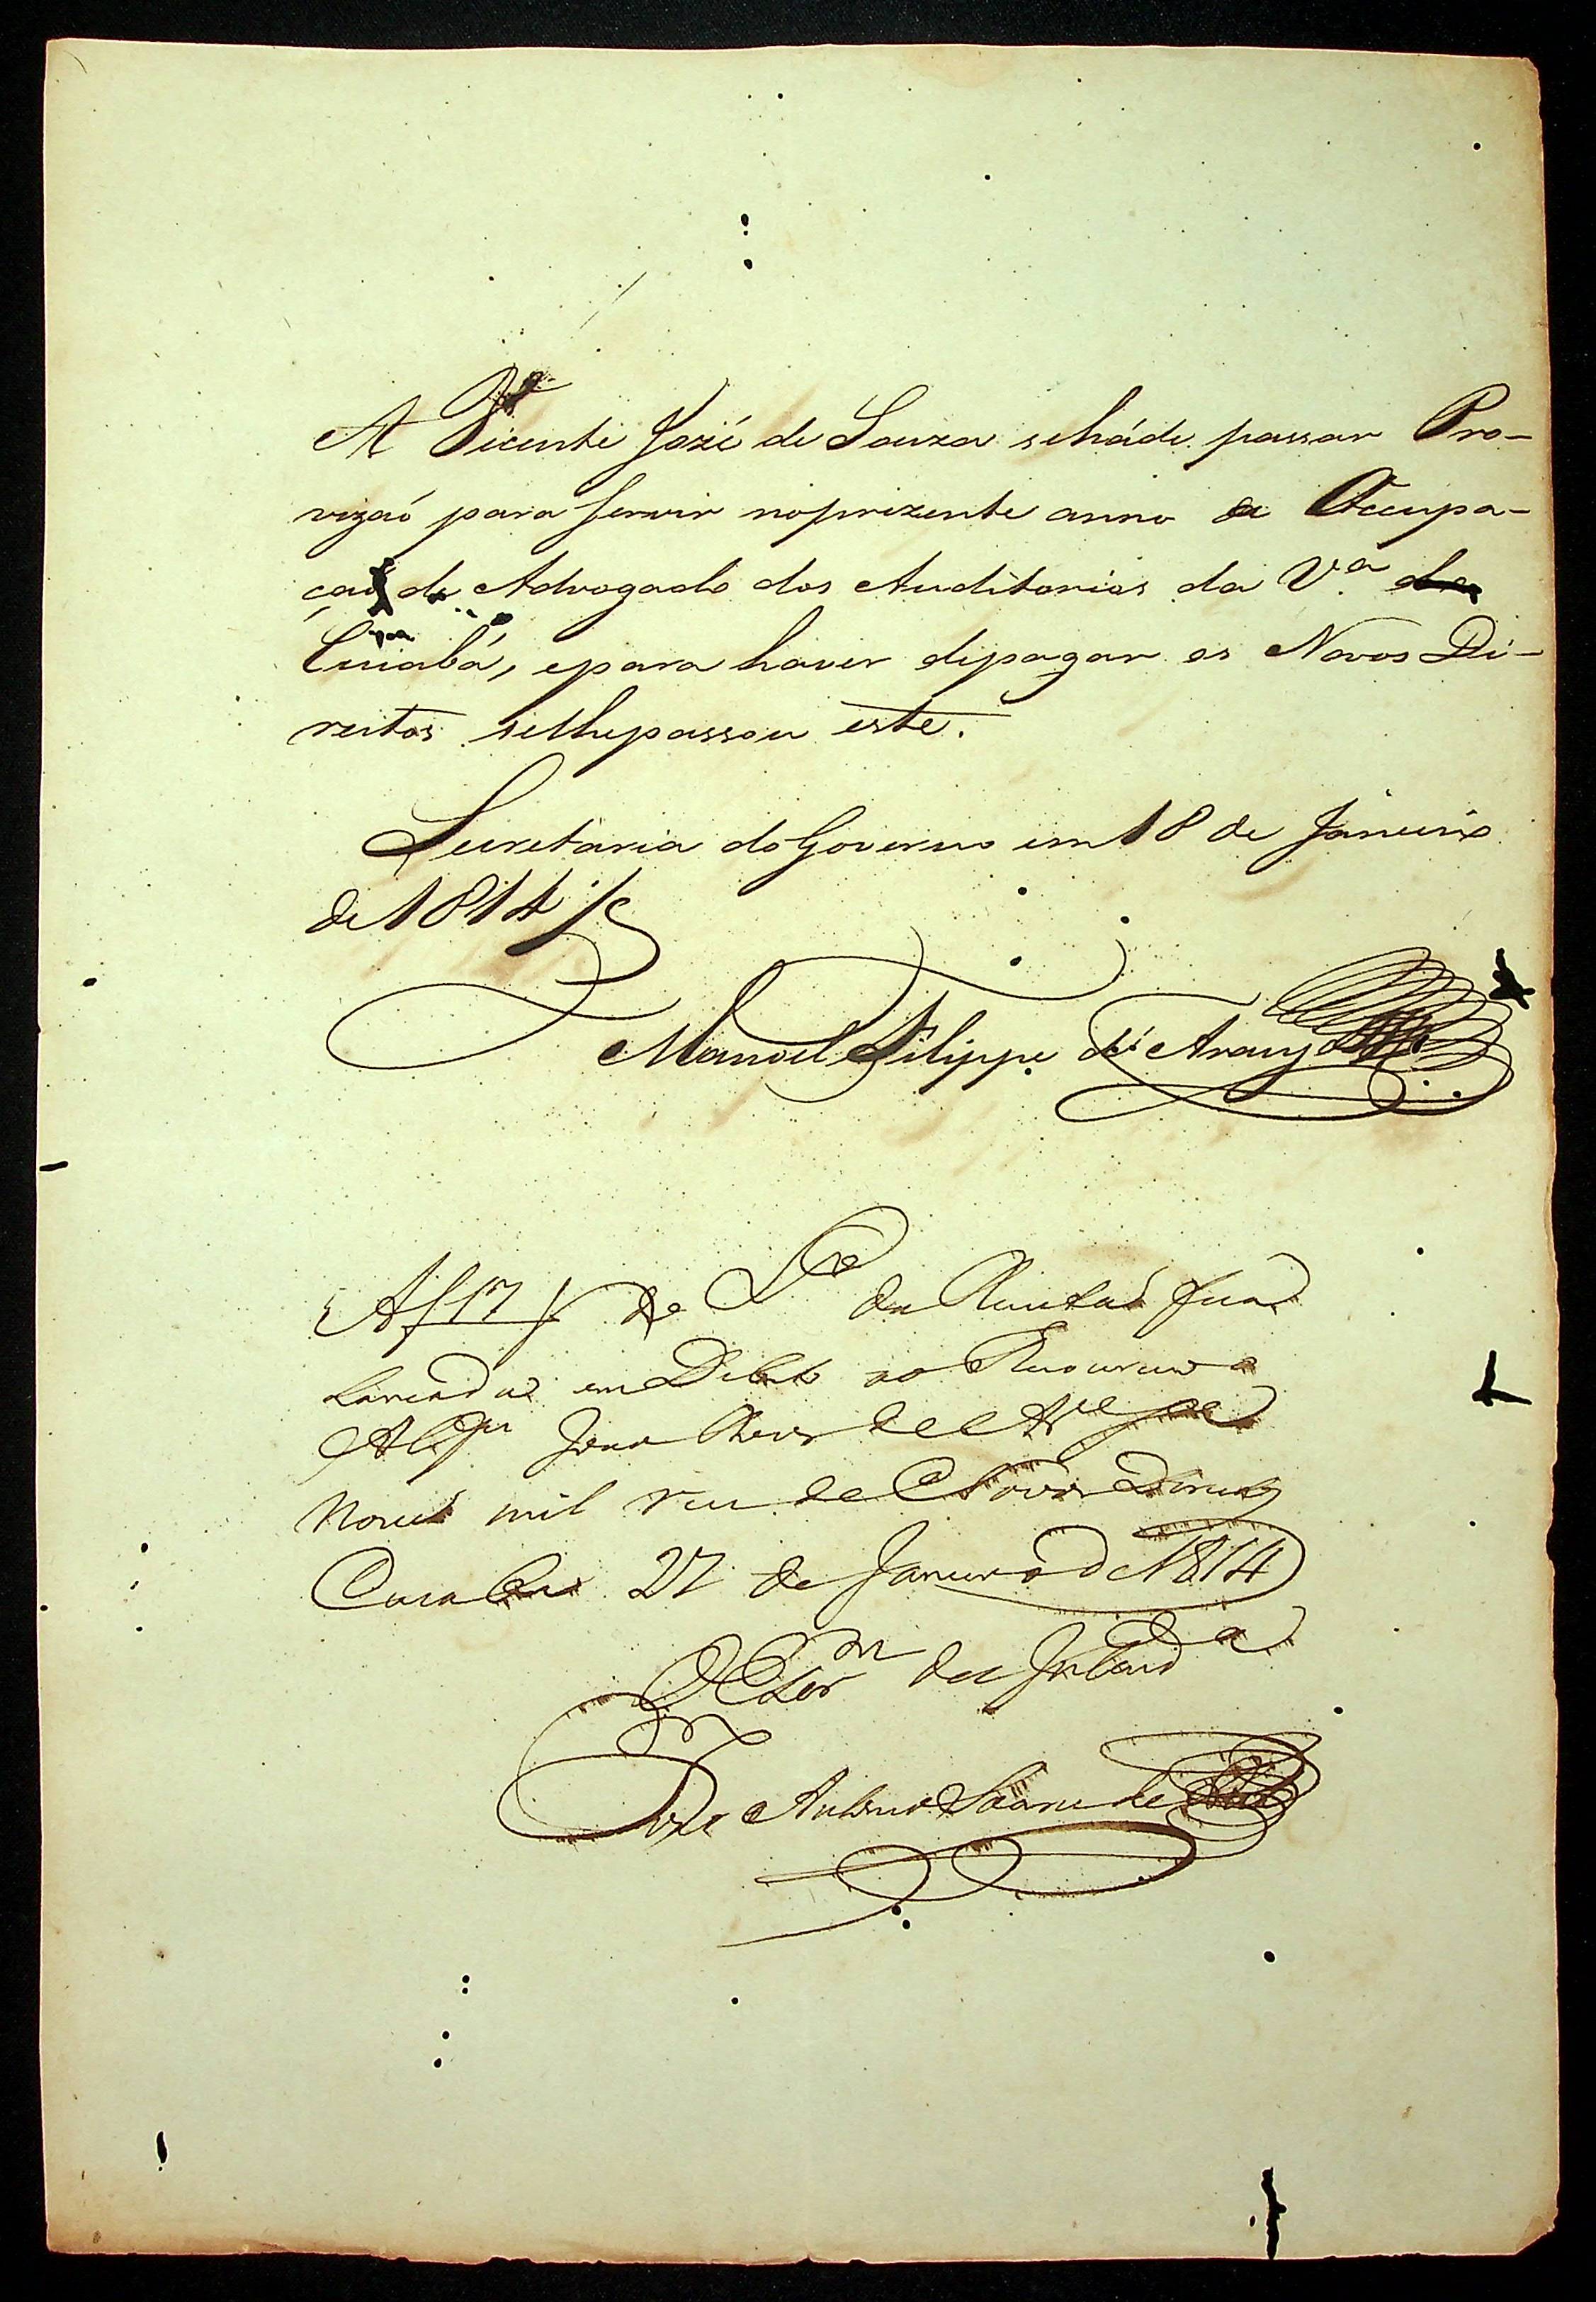 A Vicente Jozé de Souza seháde passar Pro-
vizaõ para servir noprezente anno a Occupa-
çaõ de Advogado dos Auditorios da V.ª do
Cuiabá, epara haver depagar os Novos Di-
reitos selhepassou este.
Secretaria do Governo em 18 de Janeiro
de 1814
Manoel Filippe de Araujo
Af 17 de da Receita fica
Lancado em Debito ao
nove mil reis de Novos Direitos
Cuiaba 27 de Janeiro de 1814
O Escr.m da
Joze Antonio Soares de